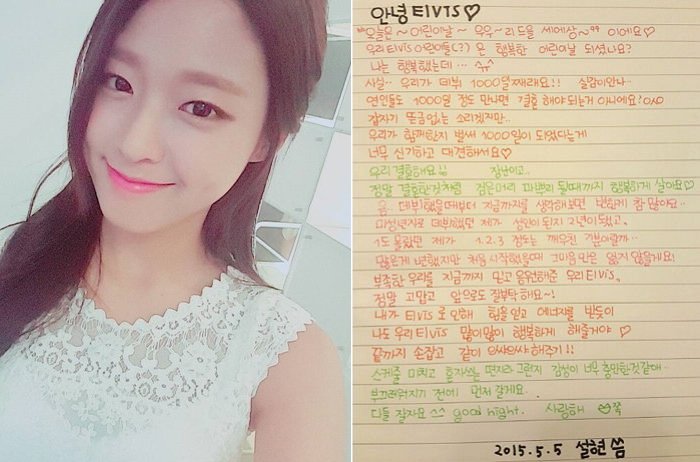 안녕 ElVIS♡
"오늘은~ 어린이날~ 우우~ 리드를 세에상~" 이에요♡
우리 ElVIS 어린이들(?)은 행복한 어린이날 되셨나요?
나는 행복했는데… ^^
사실.. 우리가 데뷔 1000일째래요!! 실감이 안나..
연인들도 1000일 정도 만나면 결혼해야 되는거 아니에요?
갑자기 뜬금없는 소리겠지만..
우리가 함께한지 벌써 1000일이 되었다는게
너무 신기하고 대견해서요♡
우리 결혼해요!! 장난이고..
정말 결혼한것처럼 검은머리 파뿌리 될때까지 행복하게 살아요♡
음.. 데뷔했을때부터 지금까지를 생각해보면 변한게 참 많아요..
미성년자로 데뷔했던 제가 성인이 된지 2년이 됐고,
1도 몰랐던 제가 1.2.3 정도는 깨우친 기분이랄까..
많은게 변했지만 처음 시작했을때 그 마음만은 잃지 않을게요!
부족한 우리를 지금까지 믿고 응원해준 우리 ElVIS,
정말 고맙고 앞으로도 잘 부탁해요~!
내가 ElVIS로 인해 힘을 얻고 에너지를 받듯이
나도 우리 ElVIS 많이많이 행복하게 해줄거야♡
끝까지 손잡고 같이 으쌰으쌰 해주기!!
스케줄 마치고 혼자쓰는 편지라 그런지 감성이 너무 충만한것같애..
부끄러워지기 전에 먼저 갈게요.
다들 잘자요^^ good night. 사랑해 쪽
2015.5.5 설현 씀